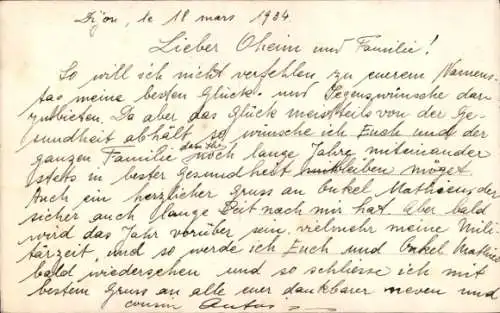 Dijon, le 18 mars 1934.
Lieber Oheim und Familie!
So will ich nicht verfehlen zu euerem Namens-
tag meine besten Glück- und Segenswünsche dar-
zubieten. Da aber das Glück meistteils von der Ge-
sundheit abhält, so wünsche ich Euch und der
ganzen Familie noch lange Jahre miteinander
stets in bester Gesundheit bleiben möget.
Auch ein herzlicher Gruss an Onkel Mathias der
sicher auch lange Zeit nach mir hat. Aber bald
wird das Jahr vorüber sein, vielmehr meine Mili-
tärzeit, und so werde ich Euch und Onkel Mathias
bald wiedersehen, und so schliesse ich mit
bestem Gruss an alle euer dankbarer neven und
cousin